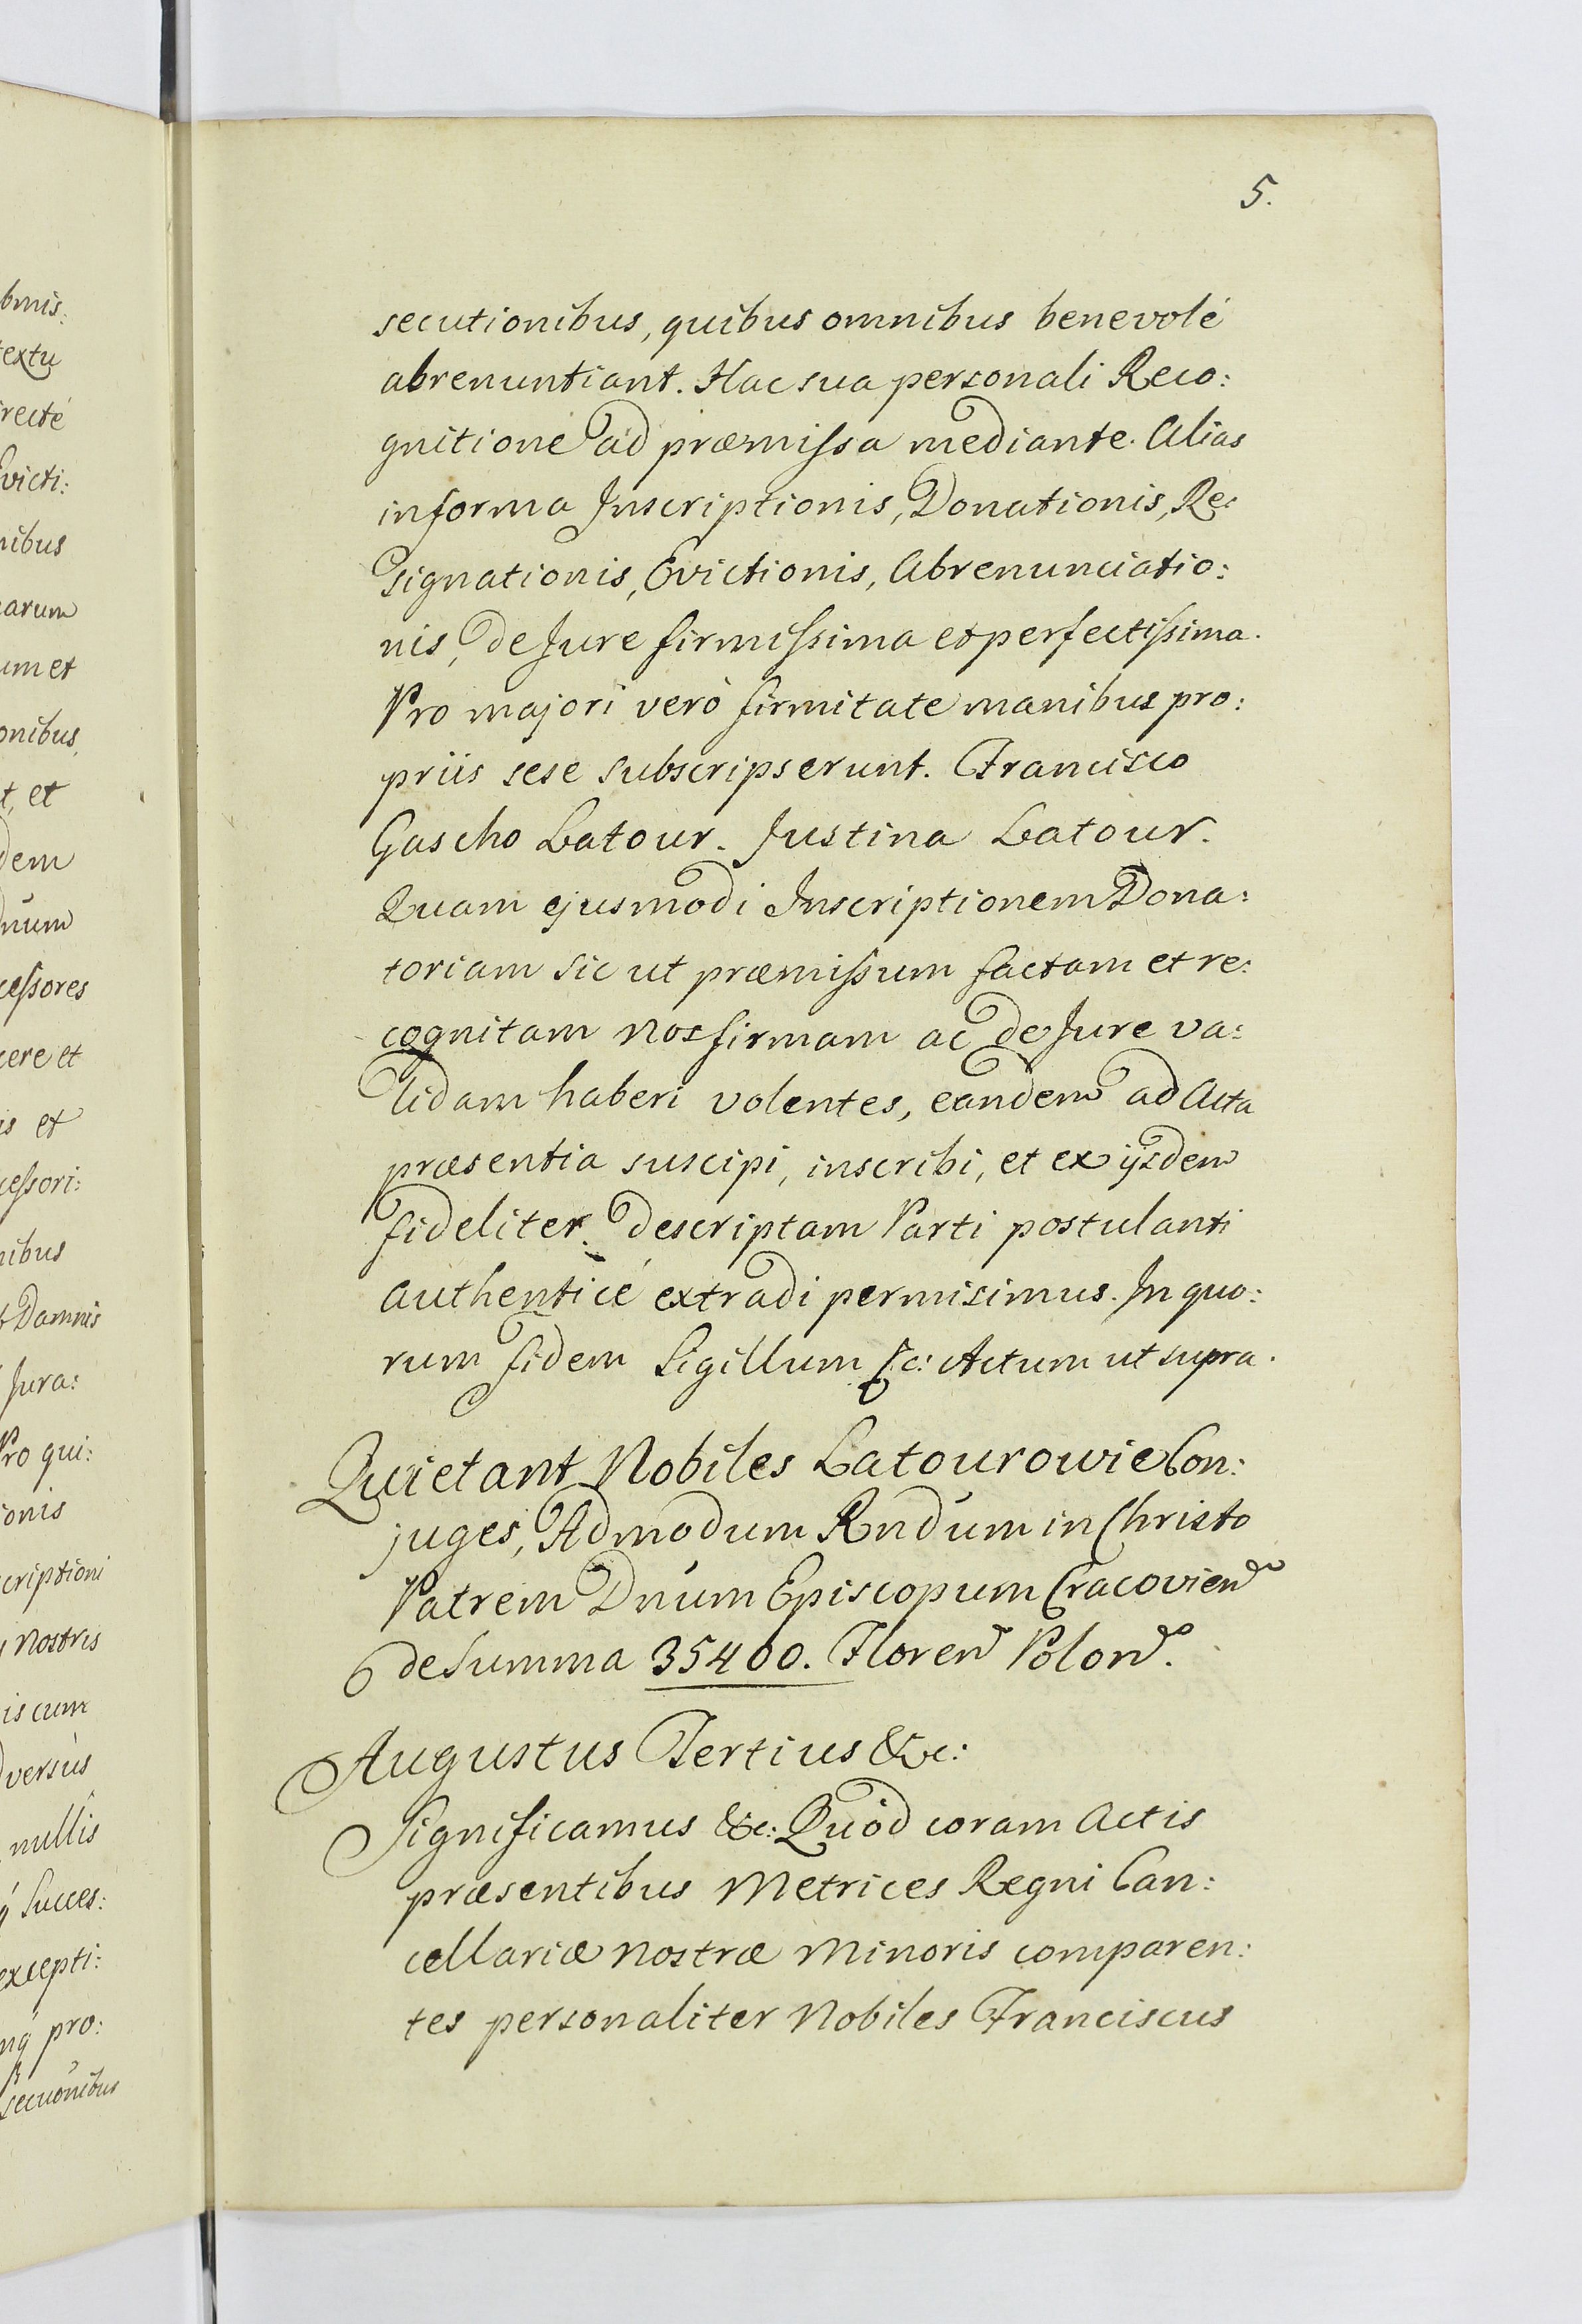 5.
secutionibus, quibus omnibus benevolé
abrenuntiant. Hac sua personali Reco:
gnitione ad præmissa mediante. Alias
in forma Inscriptionis, Donationis, Re:
signationis, Evictionis, Abrenunciatio:
nis, de Jure firmissima et perfectissima.
Pro majori verò firmitate manibus pro:
priis sese subscripserunt. Francisco
Gascho Latour. Justina Latour.
Quam ejusmodi Inscriptionem Dona:
toriam sic ut præmissum factam et re:
cognitam nos firmam ac de Jure va:
lidam haberi volentes, eandem ad Acta
præsentia suscipi, inscribi, et ex ijsdem
fideliter descriptam Parti postulanti
authenticé extradi permisimus. In quo:
rum fidem Sigillum &c: Actum ut supra.
Quietant Nobiles Latourowie Con:
juges, Admodum Rndum in Christo
Patrem Dnum Episcopum Cracovien
de Summa 35400. Floren Polon.
Augustus Tertius &c:
Significamus &c: Quòd coram Actis
præsentibus Metrices Regni Can:
cellariæ nostræ Minoris comparen:
tes personaliter Nobiles Franciscus
bmis:
textu
recté
Evicti:
nibus
arum
um et
onibus,
t, et
dem
num
cessores
cere et
is et
cessori:
nibus
Damnis
Jura:
Pro qui:
ionis
scriptioni
nostris
is cum
versùs
nullis
Succes:
excepti:
pro: